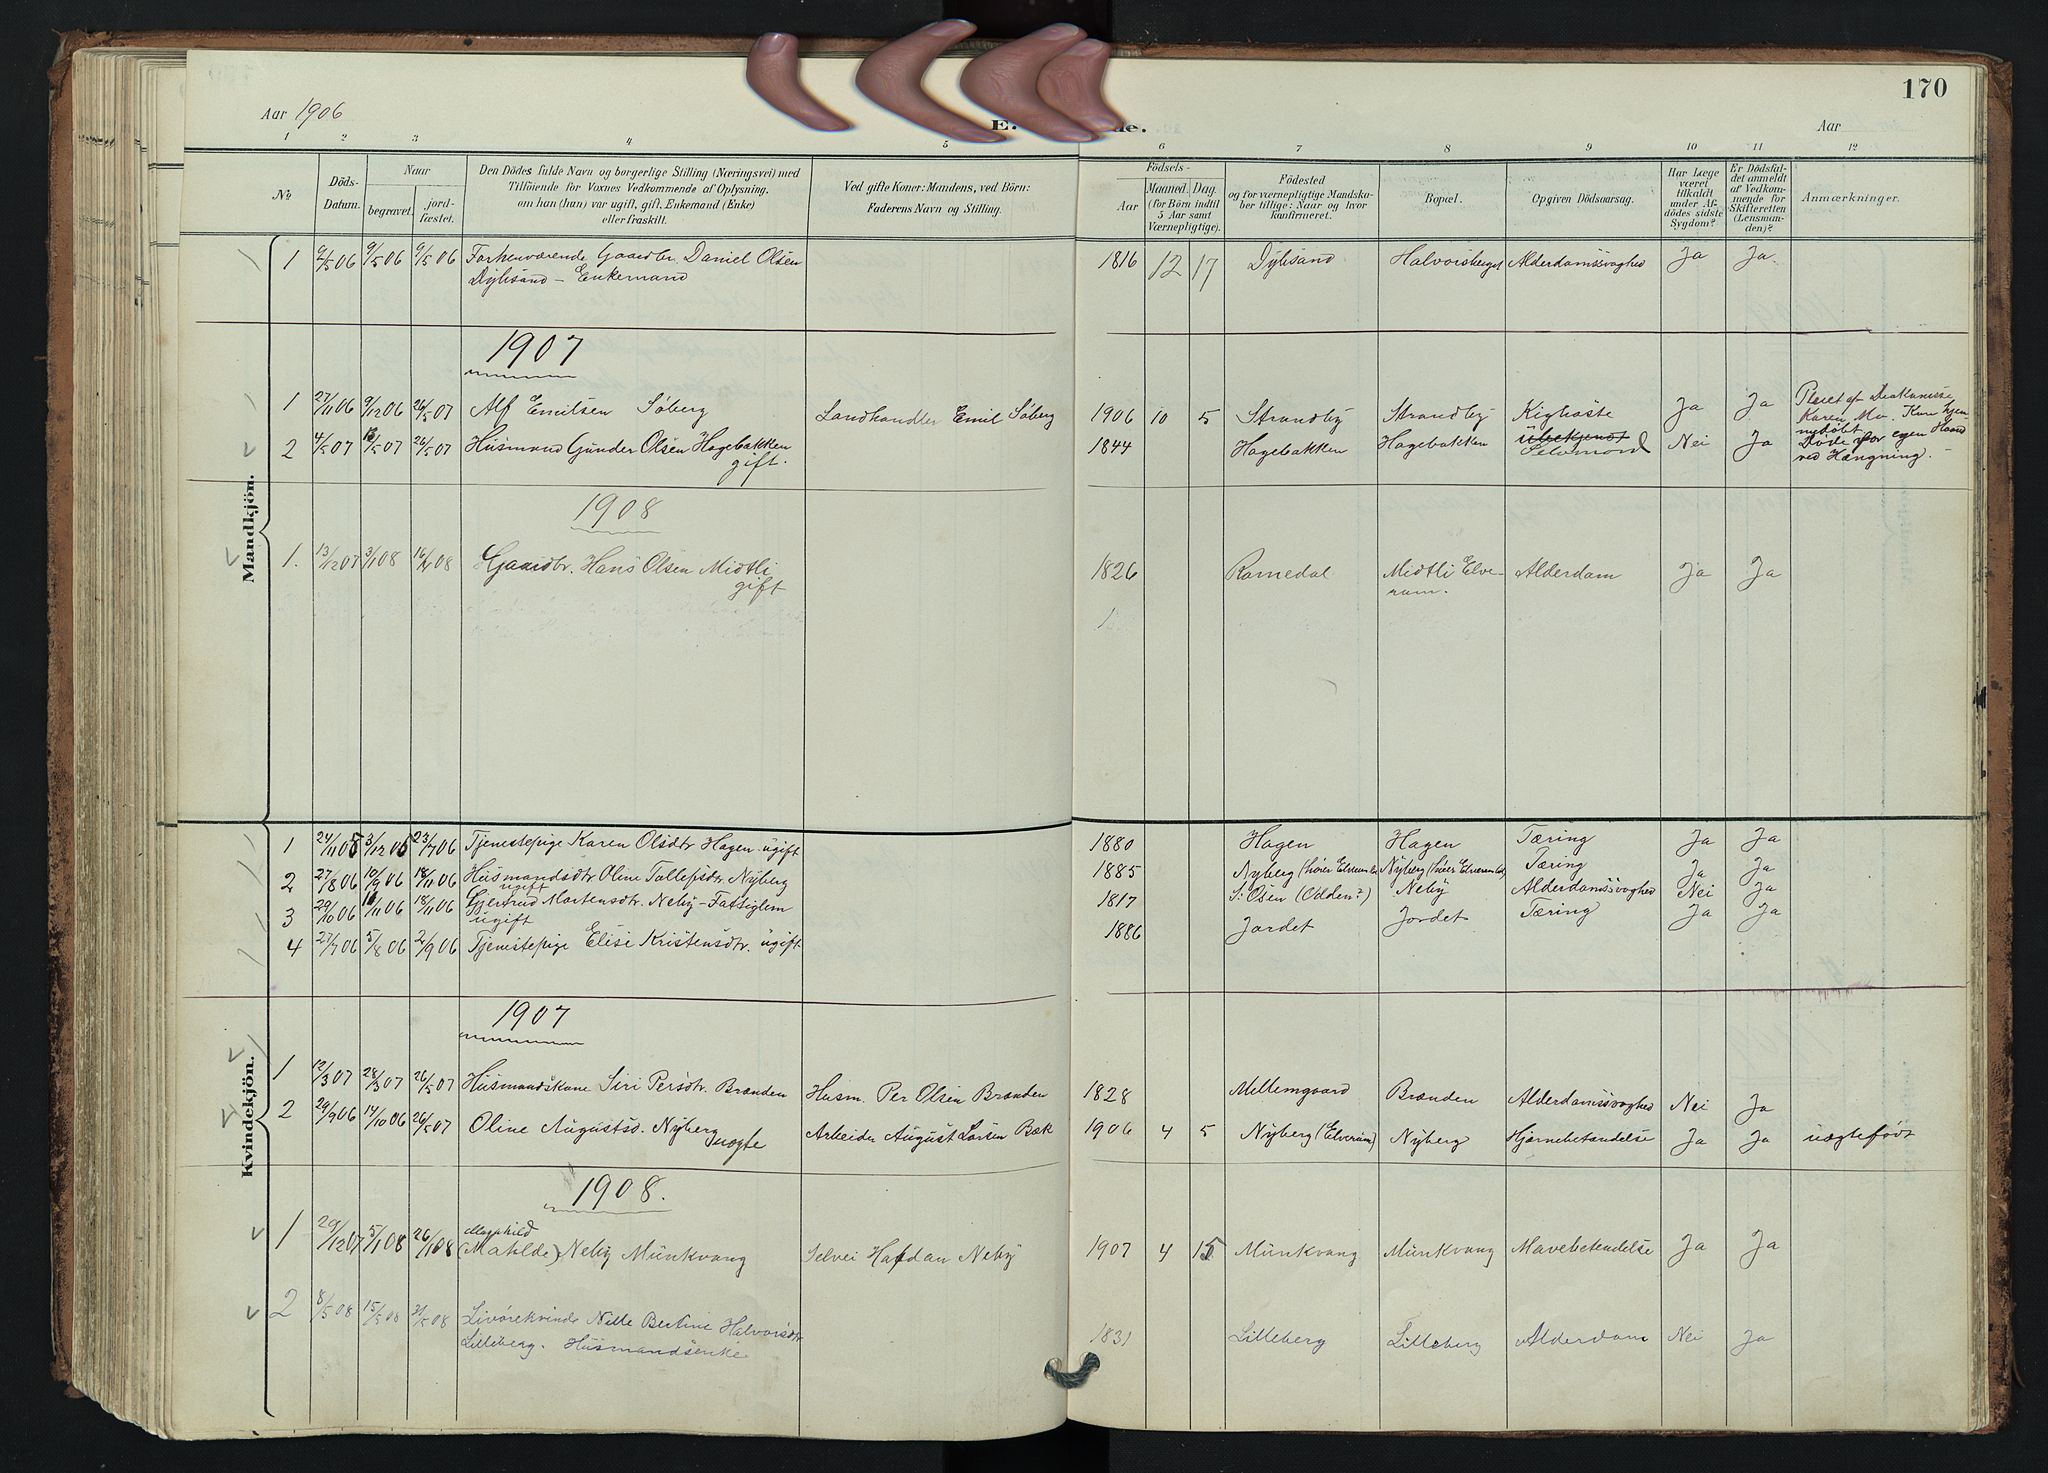 170
Aar 1906
E. de.
Aar
1 2 3 4 5 6 7 8 9 10 11 12
No.
Döds-Datum.
Naar
begravet.
jord-fæstet.
Den Dödes fulde Navn og borgerlige Stilling (Næringsvei) med
Tilföiende for Voxnes Vedkommende af Oplysning,
om han (hun) var ugift, gift, Enkemand (Enke)
eller fraskilt.
Ved gifte Koner: Mandens, ved Börn:
Faderens Navn og Stilling.
Födsels-
Aar
Maaned. Dag.
(for Börn indtil
5 Aar samt
Værnepligtige).
Födested
og for værnepligtige Mandska-
ber tillige: Naar og hvor
konfirmeret.
Bopæl.
Opgiven Dödsaarsag.
Har Læge
været
tilkaldt
under Af-
dödes sidste
Sygdom?
Er Dödsfal-
det anmeldt
af Vedkom-
mende for
Skifteretten
(Lensman-
den)?
Anmærkninger.
Mandkjön.
1 2/5 06 9/5 06 9/5 06 Forhenværende Gaardbr. Daniel Olsen 1816 12 17 Dÿlisand Halvorsberget Alderdomssvaghed Ja Ja.
Dÿlisand – Enkemand
1907
1 27/11 06 9/12 06 26/5 07 Alf Emilsen Søberg Landhandler Emil Søberg 1906 10 5 Strandbÿ Strandbÿ Kighoste Ja Ja Pleiet af Diakonisse
Karen
Hjemmedøbt
2 4/5 07 /5 07 26/5 07 Husmand Gunder Olsen Hagebakken 1844 Hagebakken Hagebakken Ubekjendt Nei Ja Døde for egen Haand
gift. Selvmord ved Hængning. –
1908
1. 13/12 07 3/1 08 08 Gaardbr. Hans Olsen Midtli 1826 Romedal Midtli Elve- Alderdom Ja Ja
gift rum.
Kvindekjön.
1 24/11 05 3/12 05 23/7 06 Tjenestepige Karen Olsdtr Hagen ugift 1880 Hagen Hagen Tæring Ja Ja
2 27/8 06 10/9 06 18/11 06 Husmandsdtr Oline Tollefsdtr. Nÿberg 1885 Nÿberg Nÿberg Tæring Ja Ja
ugift
3 29/10 06 11/11 06 18/11 06 Gjertrud Mortensdtr. Nebÿ – Fattiglem 1817 S: Osen (Odden?) Nebÿ Alderdomssvaghed Nei Ja
ugift
4 27/7 06 5/8 06 2/9 06 Tjenestepige Elise Kristensdtr. ugift 1886 Jordet Jordet Tæring Ja Ja
1907
1 12/3 07 28/3 07 26/5 07 Husmandskone Siri Persdtr. Brænden Husm. Per Olsen Brænden 1828 Mellemgaard Brænden Alderdomssvaghed Nei Ja
2 29/9 06 14/10 06 26/5 07 Oline Augustsd. Nÿberg Arbeider August Larsen Bæk 1906 4 5 Nÿberg (Elverum) Nÿberg Hjernebetændelse Ja Ja uægtefødt
uægte
1908.
1 29/12 07 5/1 08 26/1 08 Magnhild
(Matilde) Nebÿ Munkvang Selvei Halfdan Nebÿ 1907 4 15 Munkvang Munkvang Mavebetendelse Ja Ja
2 8/5 08 15/5 08 31/5 08 Livørekvinde Nille Bertine Halvorsdtr 1831 Lilleberg Lilleberg Alderdom Nei Ja
Lilleberg. Husmandsenke